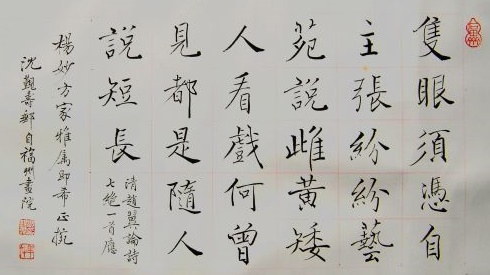 隻眼須憑自
主張紛紛藝
苑説雌黃矮
人看戲何曾
見都是隨人
説短長
清趙翼論詩
七絶一首應
楊妙方家雅屬即希正腕
沈覲壽郵自福州畫院